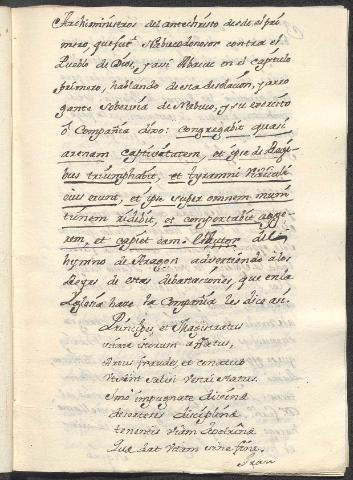 Archiministros del antechristo desde el pri
mero que fue Nabucodonosor contra el
Pueblo de Dios, y assi Abacuc en el capitulo
primero, hablando de esta desolacion, y arro
gante sobervia de Nabuco, y su exercito
ô Compañia dixo: congregabit quasi
arenam captivitatem, et ipse de Regi
bus triumphabit, et tyranni ridiculi
eius erunt, et ipse super omnem muni
tionem ridebit, et comportabit agge
rem, et capiet eam. El Autor del
hymno de Aragon advertiendo â los
Reyes de estas debastaciones, que en la
Iglesia hace la Compañia les dice asi.
Principes et Magistratus
istorum affatus,
Artus fraudes, et conatus
Vivant salvi vestri status.
impugnate divina
disciplina
tenentes viam doctrina
Quæ dat vitam sine fine.